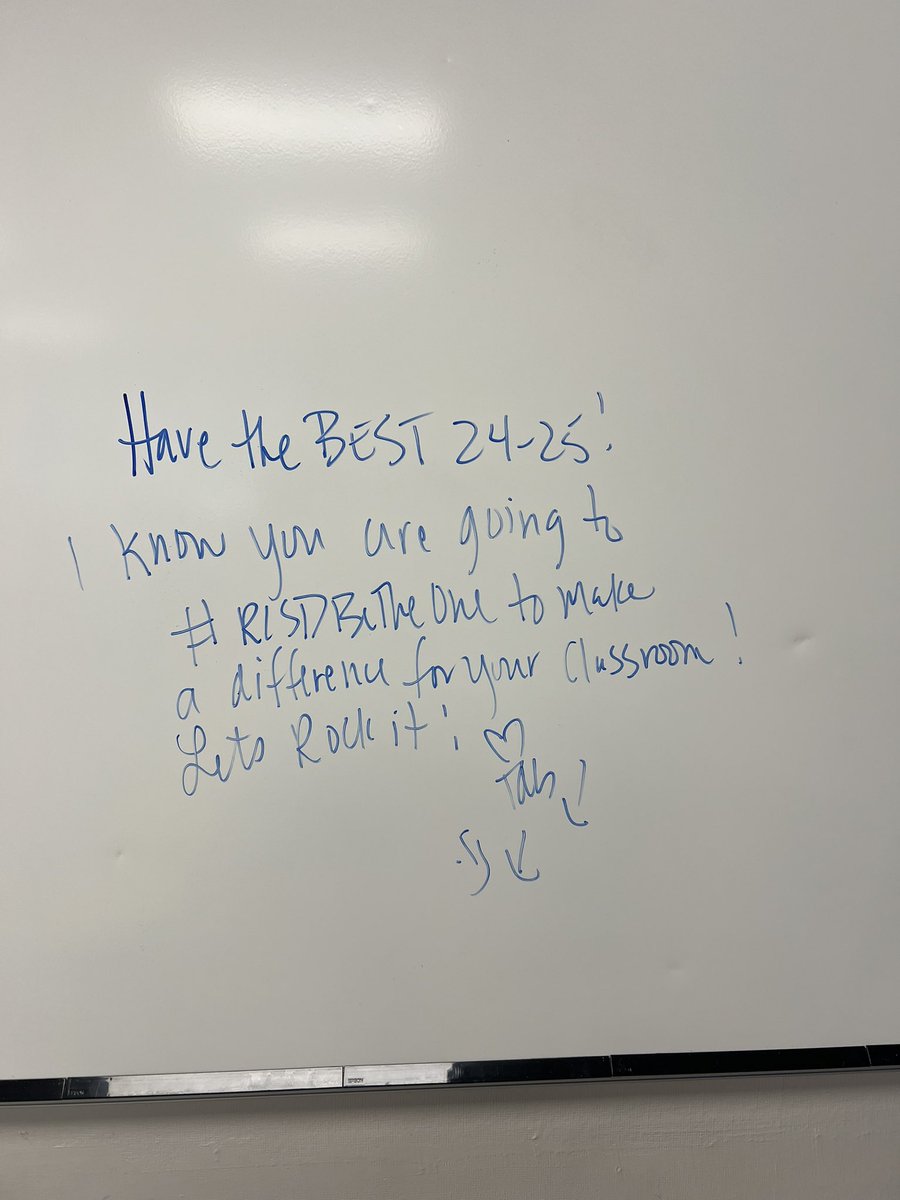 Have the BEST 24-25!
I know you are going to
#RISDBeTheOne to make
a difference for your classroom!
Lets Rock it! ♡
EPSON